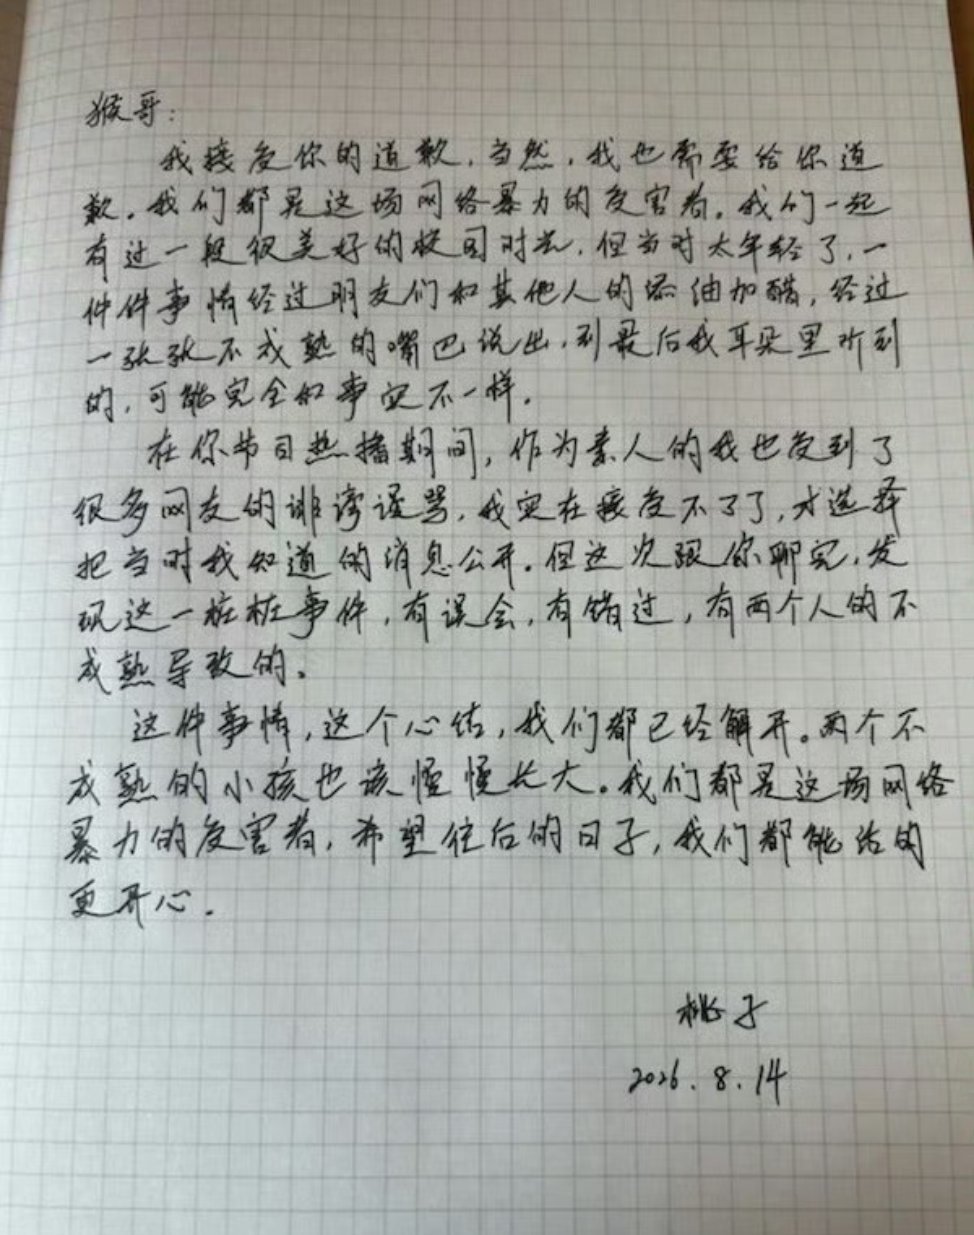 猴哥：
我接受你的道歉，当然，我也需要给你道
歉。我们都是这场网络暴力的受害者。我们一起
有过一段很美好的校园时光，但当时太年轻了，一
件件事情经过朋友们和其他人的添油加醋，经过
一张张不成熟的嘴巴说出，到最后我耳朵里听到
的，可能完全和事实不一样。
在你节目热播期间，作为素人的我也受到了
很多网友的诽谤谩骂，我实在接受不了了，才选择
把当时我知道的消息公开。但这次跟你聊完，发
现这一桩桩事件，有误会，有错过，有两个人的不
成熟导致的。
这件事情，这个心结，我们都已经解开。两个不
成熟的小孩也该慢慢长大。我们都是这场网络
暴力的受害者，希望往后的日子，我们都能活的
更开心。
桃子
2026.8.14